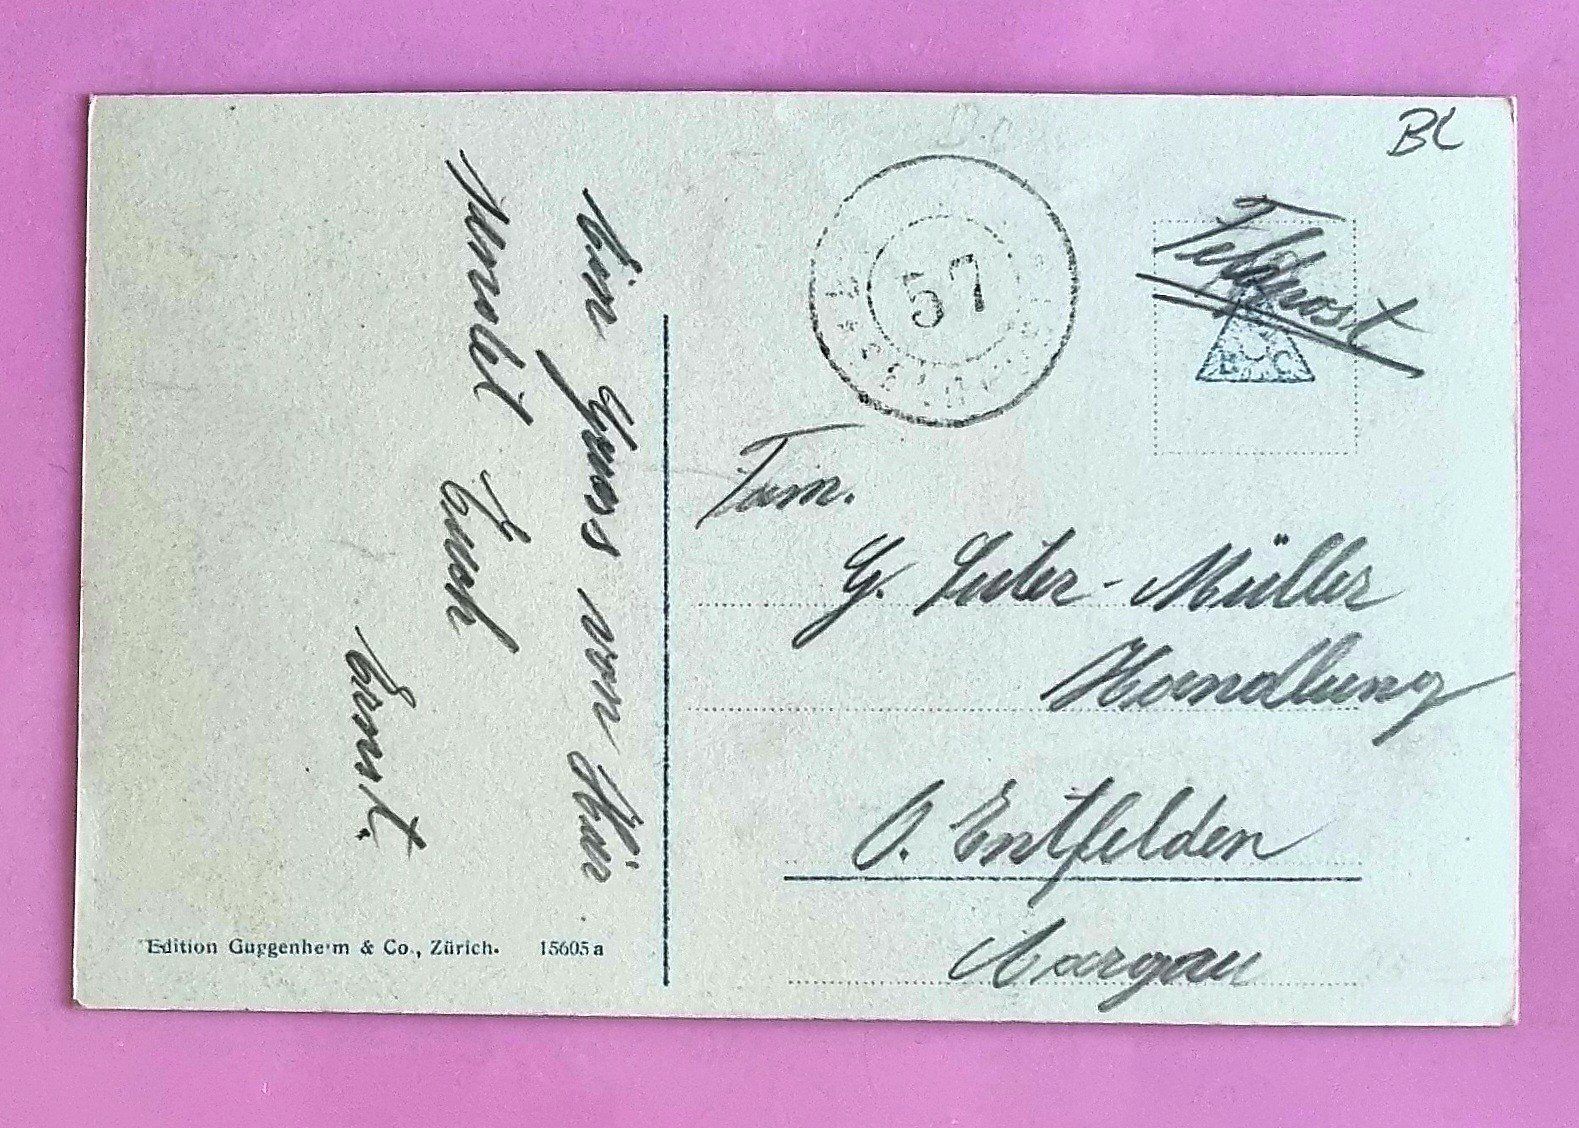 BL
Feldpost
57
Fam.
G. Suter-Müller
Handlung
O. Entfelden
Aargau
Ein Gruss von Hier
sendet Euch
Ernst.
Edition Guggenheim & Co., Zürich. 15605 a